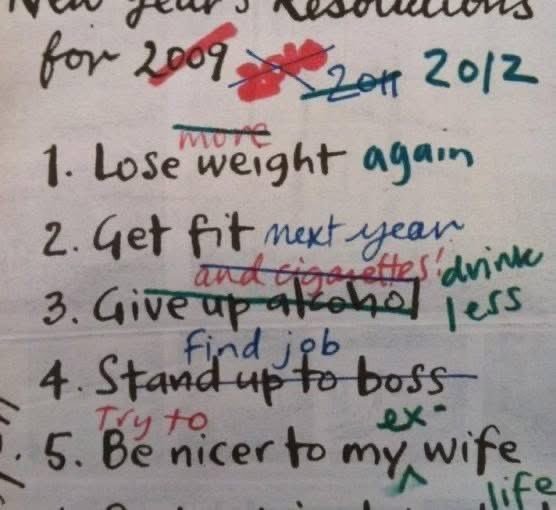 New Year's Resolutions
for 2009 2010 2011 2012
more
1. Lose weight again
2. Get fit next year
and cigarettes! drink
3. Give up alcohol less
find job
4. Stand up to boss
Try to ex-
5. Be nicer to my wife
life